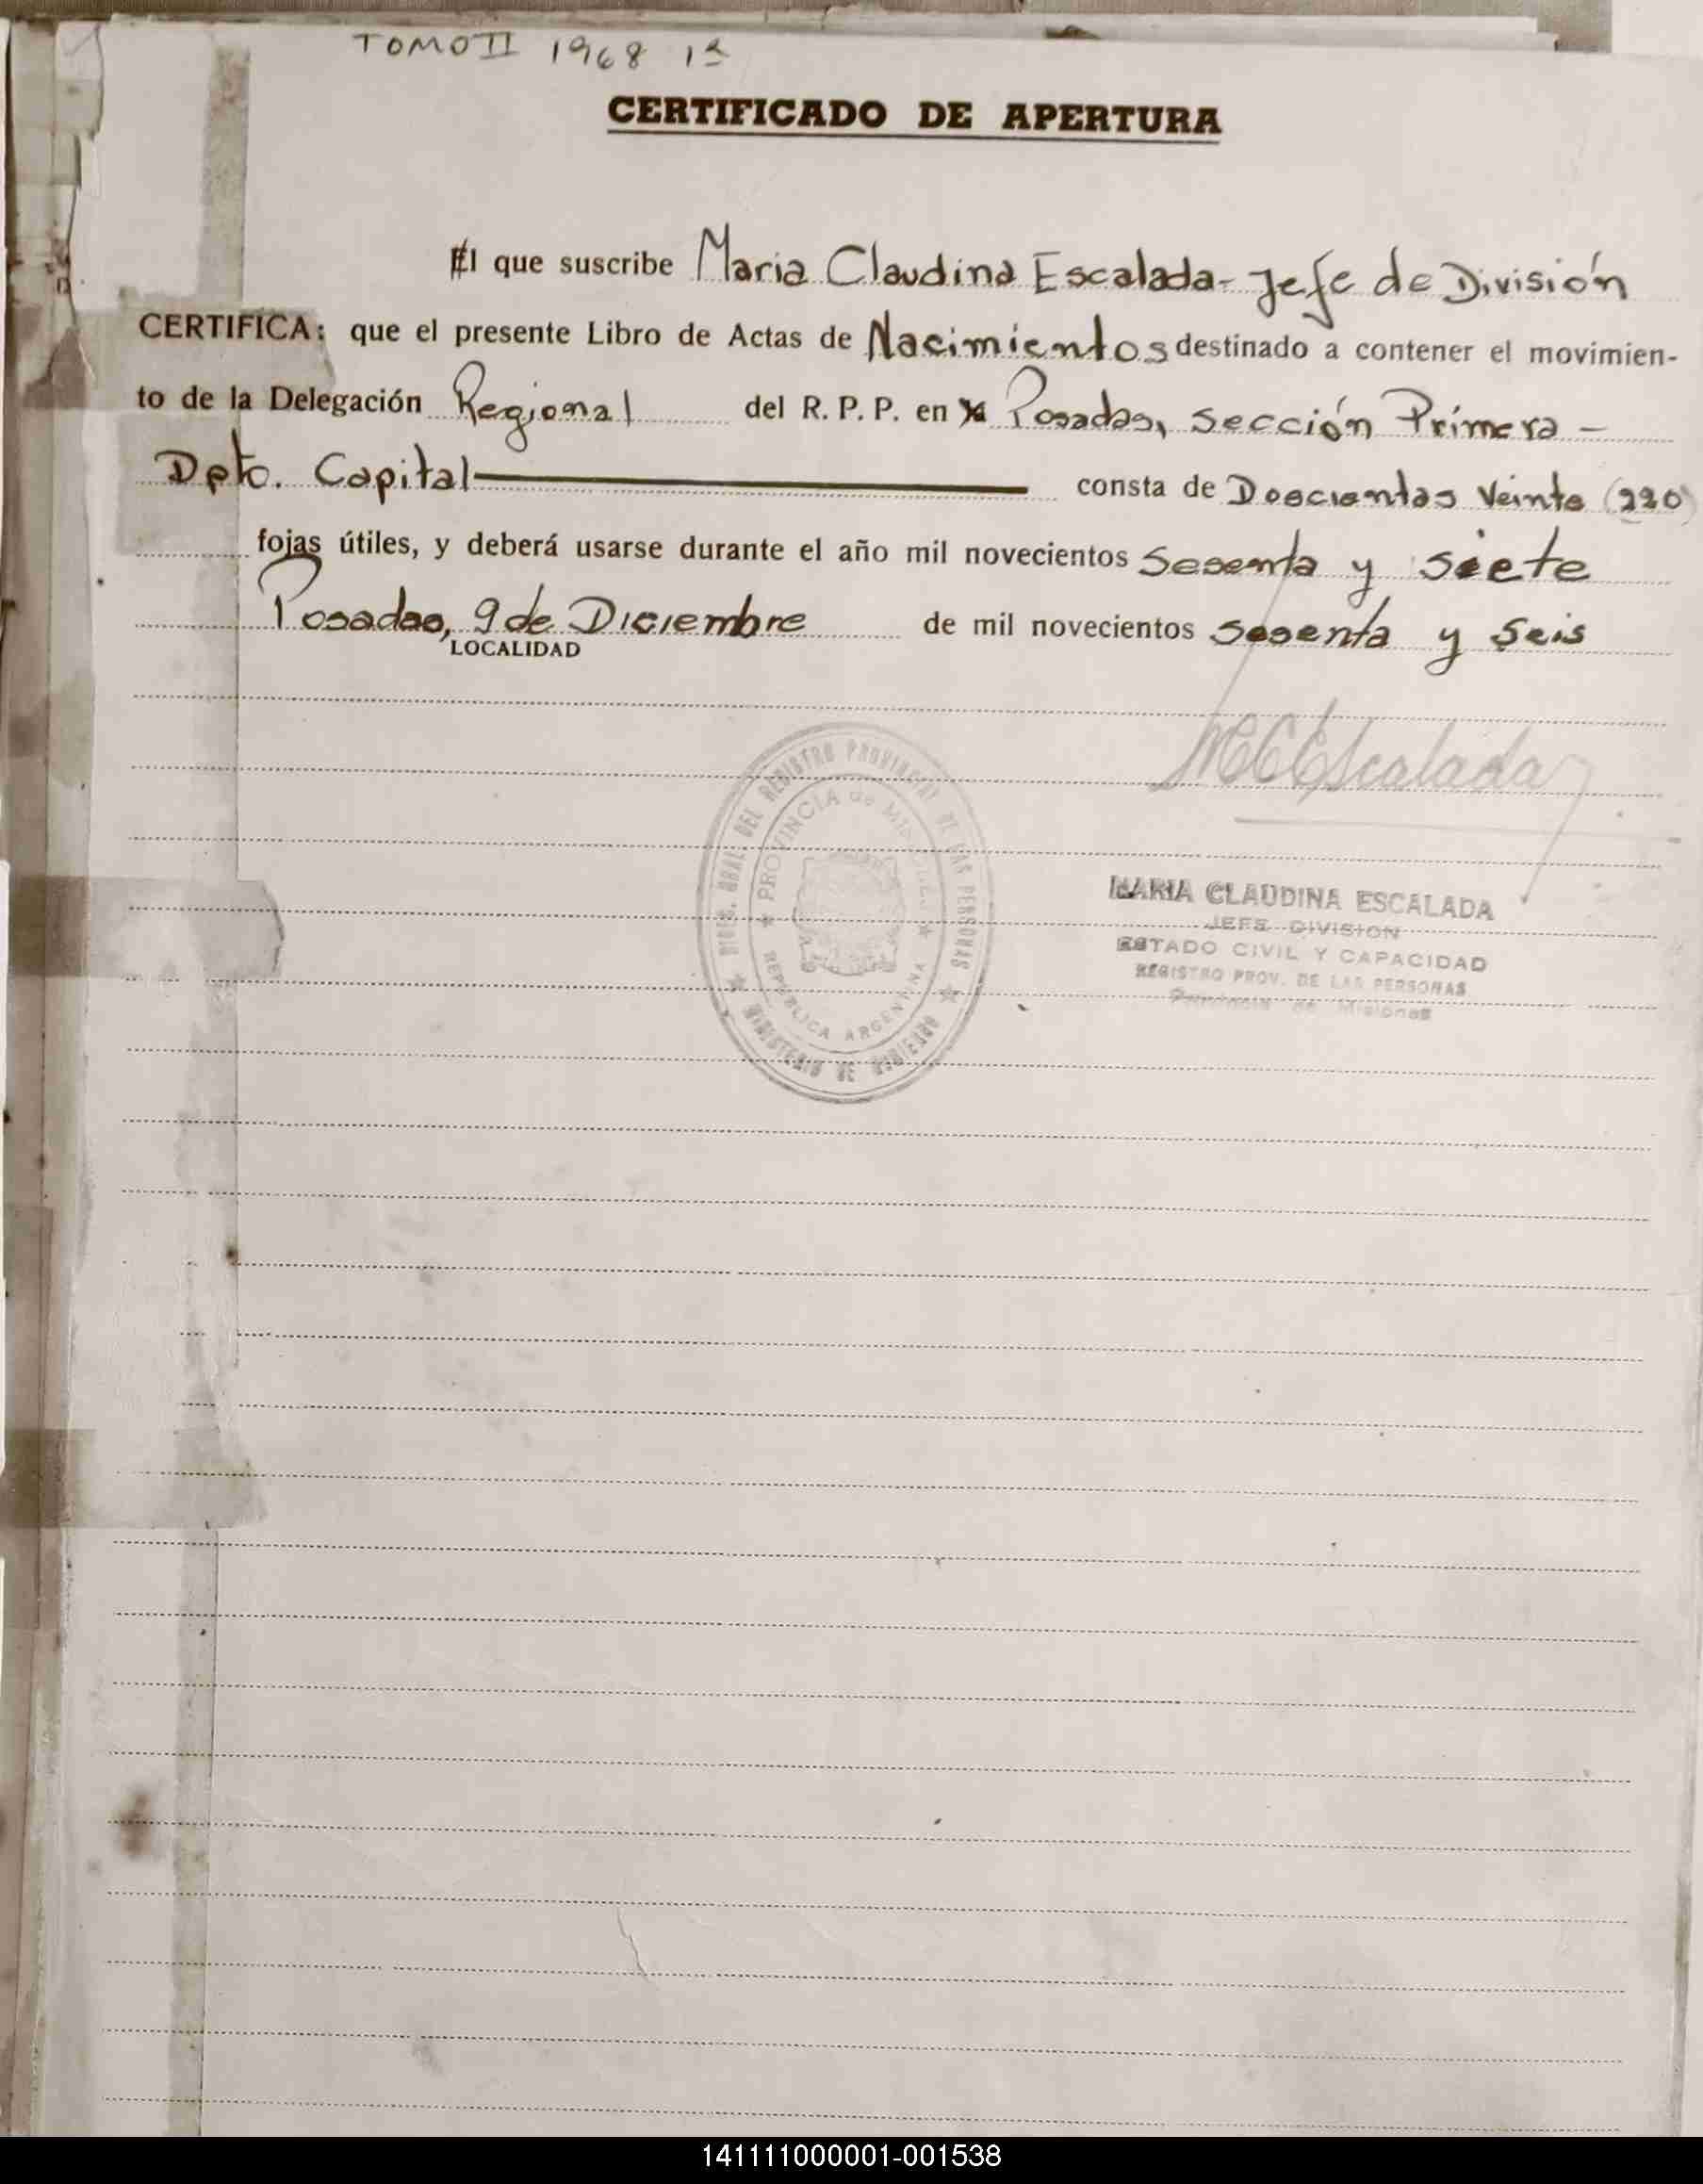 TOMO II 1968 1ª
CERTIFICADO DE APERTURA
El que suscribe Maria Claudina Escalada - Jefe de División
CERTIFICA: que el presente Libro de Actas de Nacimientos destinado a contener el movimien-
to de la Delegación Regional del R. P. P. en Posadas, Sección Primera -
Dpto. Capital consta de Doscientas Veinte (220)
fojas útiles, y deberá usarse durante el año mil novecientos Sesenta y siete
Posadas, 9 de Diciembre de mil novecientos Sesenta y Seis
LOCALIDAD
MCEscalada
DIREC. GRAL. DEL REGISTRO PROVINCIAL DE LAS PERSONAS
PROVINCIA de MISIONES
REPUBLICA ARGENTINA
MINISTERIO DE GOBIERNO
MARIA CLAUDINA ESCALADA
JEFE DIVISION
ESTADO CIVIL Y CAPACIDAD
REGISTRO PROV. DE LAS PERSONAS
Provincia de Misiones
141111000001-001538